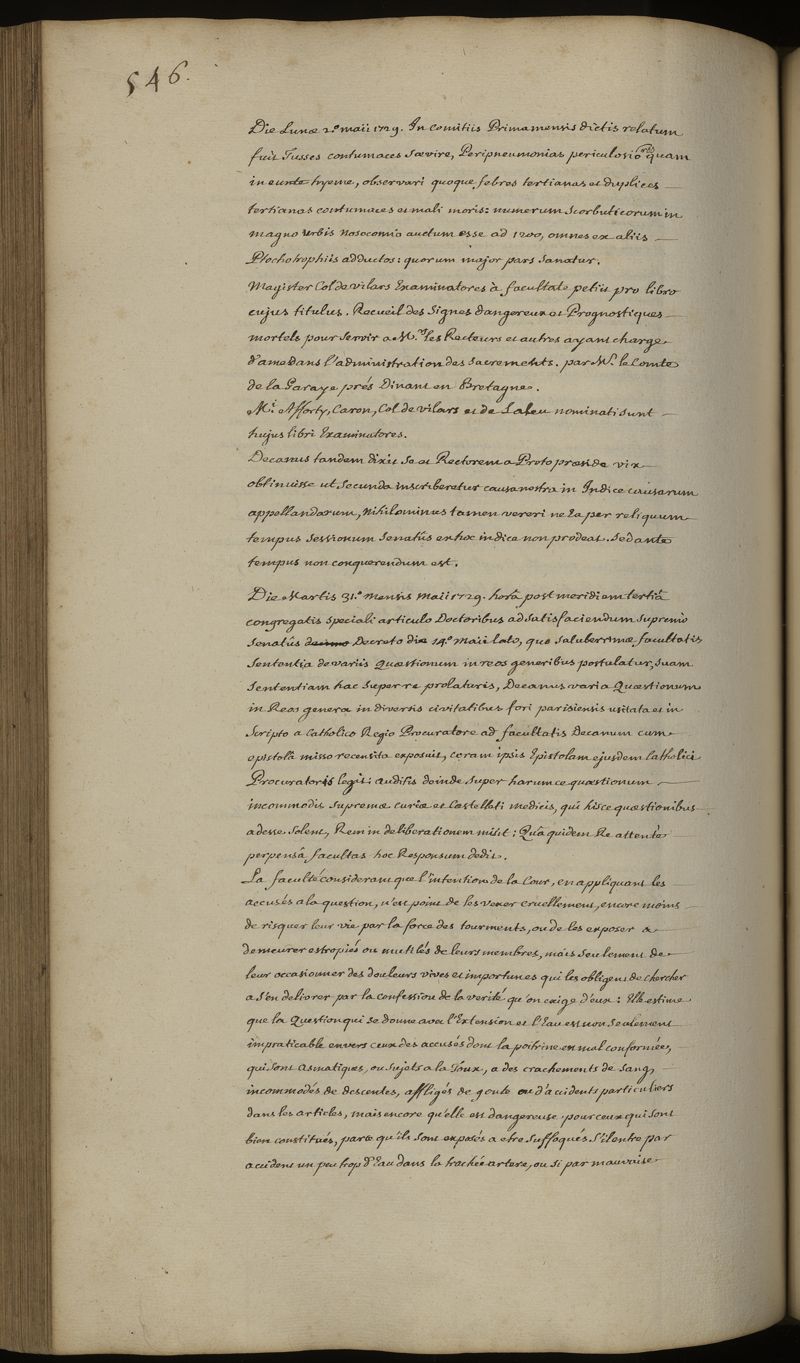 546.
Die Lunæ 2.ª maii 1729. In comitiis Primamensis dictis relatum
fuit Tusses contumaces sævire, Peripneumonias periculosio res quam
in eunte hyeme, observari quoque febres tertianas et duplices
tertianas contumaces et mali moris: numerum Scorbuticorum in
magno urbis nosocomio auctum esse ad 1200, omnes ex aliis
Ptochotrophiis adductos: quorum major pars sanatur.
Magister Col de vilars Examinatores à facultate petiit pro libro
cujus titulus. Recueil des Signes dangereux et Prognostiques
mortels pour servir a M.rs les Recteurs et autres ayant charge
d'ame dans l'administration des Sacrements. par M. le Comte
de la Garaye prés Dinant en Bretagne.
M.i Afforty, Caron, Col de vilars et de Laleu nominati sunt
hujus libri Examinatores.
Decanus tandem dixit se et Rectorem a Protopræside vix
obtinuisse ut secunda inscriberetur causa nostra in Indice causarum
appellandarum, Nihilominus tamen vereri ne ea per reliquum
tempus sessionum Senatûs ex hoc indice non prodeat. Sed ante
tempus non conquerendum est.
Die Martis 31.ª mensis Maii 1729. horâ post meridiem tertiâ
congregatis speciali articulo Doctoribus ad satisfaciendum supremo
Senatûs Decreto die 14.ª Maii lato, quo saluberrimæ facultatis
Sententia de variis Quæstionum in reos generibus postulatur, suam
Sententiam hac super re prolaturis, Decanus varia Quæstionum
in Reos genera in diversis civitatibus fori parisiensis usitata et in
Scripto a Catholico Regio Procuratore ad facultatis Decanum cum
epistolâ misso recensita exposuit, coram ipsis Epistolam ejusdem Catholici
Procuratoris legit: auditis deinde super harumce quæstionum
incommodis supremæ curiæ et Castellati medicis, qui hisce quæstionibus
adesse solent, Rem in deliberationem misit: Quâ quidem Re attente
perpensâ facultas hoc Responsum dedit.
La faculté considerant que l'intention de la Cour, en appliquant les
accusés a la question, n'est point de les vexer cruellement, encore moins
de risquer leur vie par la force des tourments, ou de les exposer a
demeurer estropiés ou mutilés de leurs membres, mais seulement de
leur occasionner des douleurs vives et importunes qui les obligent de chercher
a s'en delivrer par la confession de la verité qu'on exige d'eux: Elle estime
que la Question qui se donne avec l'Extension et l'Eau est non seulement
impraticable envers ceux des accusés dont la poitrine est mal conformée,
qui sont asmatiques, ou sujets a la Toux, a des crachements de sang,
incommodés de descentes, affligés de goute ou d'accidents particuliers
dans les articles, mais encore qu'elle est dangereuse pour ceux qui sont
bien constitués, parce qu'ils sont exposés a etre suffoqués s'il entre par
accident un peu trop d'Eau dans la trachée artere, ou si par mauvaise